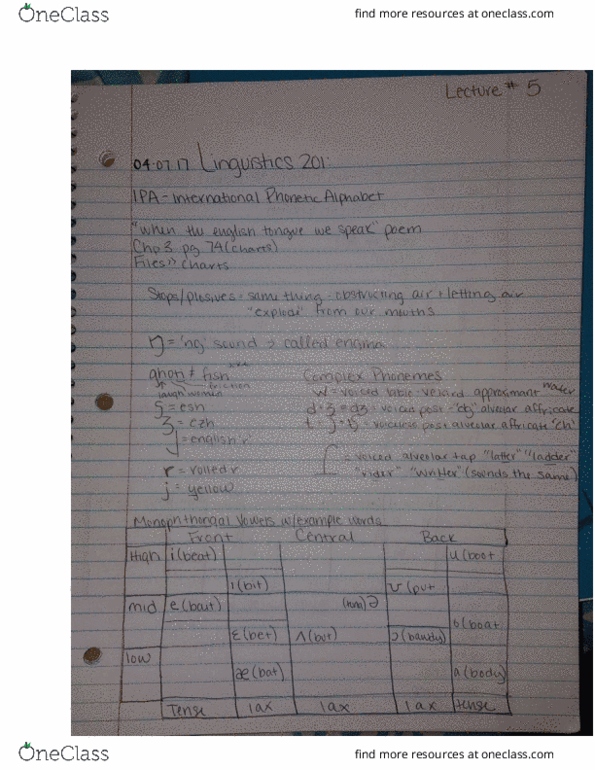 OneClass find more resources at oneclass.com
Lecture # 5
04.07.17 Linguistics 201
IPA - International Phonetic Alphabet
"when the english tongue we speak" poem
Chp 3 pg 74 (charts)
Files >> charts
Stops/plosives = same thing - obstructing air + letting air
"explode" from our mouths
ŋ = 'ng' sound → called engma
ghoti ≠ fish
laugh women friction
Complex Phonemes
w = voiced labio-velar approximant water
ʃ = esh
d + ʒ = dʒ = voiced post alveolar affricate
ʒ = ezh
t + ʃ = tʃ = voiceless post alveolar affricate "ch"
ɹ = english 'r'
ɾ = voiced alveolar tap "latter" "ladder"
r = rolled r
"rider" "writer" (sounds the same)
j = yellow
Monophthongal Vowels w/example words
Front Central Back
High i (beat) u (boot
ɪ (bit) ʊ (put
mid e (bait) ə
o (boat
ɛ (bet) ʌ (but) ɔ (bawdy)
low
æ (bat) a (body)
Tense lax lax lax tense
OneClass find more resources at oneclass.com